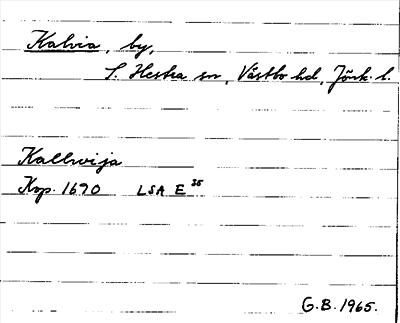 Kalvia, by,
S. Hestra sn, Västbo hd, Jönk. l.
Kallwija
Kop. 1690 LSA E 35
G.B. 1965.